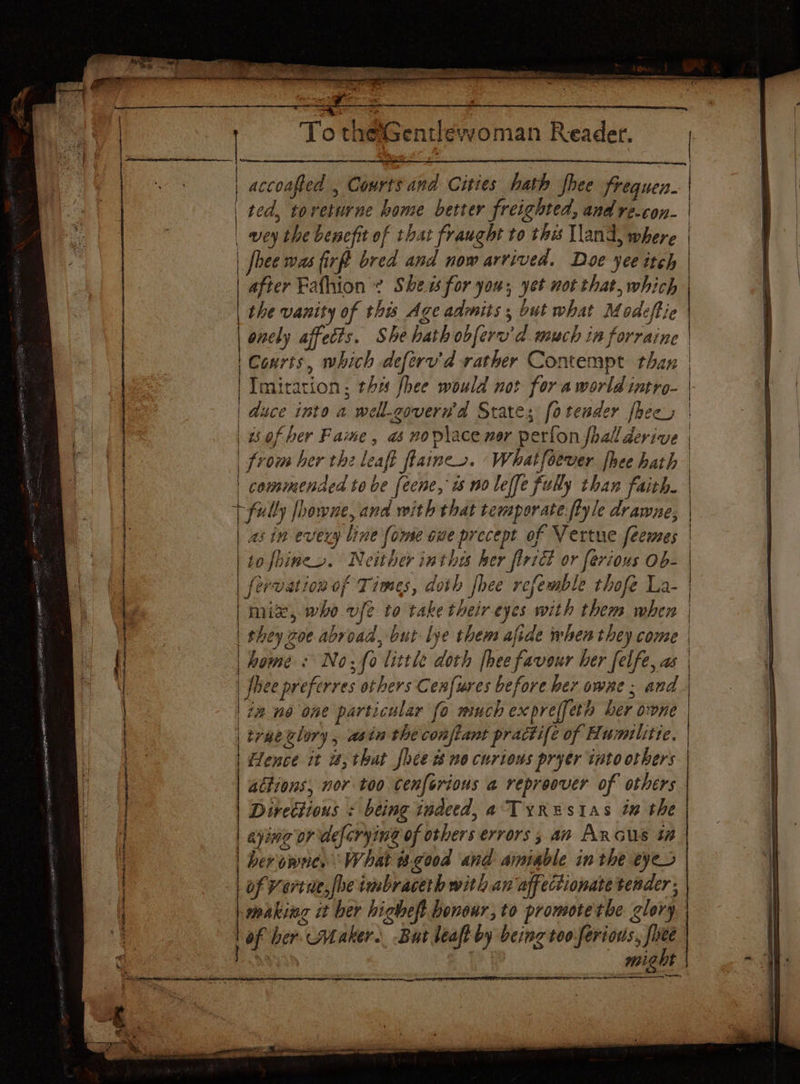 To the Gentlewoman Reader.
accoasted, Courts and Cities hath shee frequen-
ted, to returne home better freighted, and re-con-
vey the benefit of that fraught to this Iland, where
shee was first bred and now arrived. Doe yee itch
after Fashion? She is for you; yet not that, which
the vanity of this Age admits, but what Modestie
onely affects. She hath observ'd much in forraine
Courts, which deserv'd rather Contempt than
Imitation; this shee would not for a world intro-
duce into a well-govern'd State; so tender shee
is of her Fame, as no place nor person shall derive
from her the least staine. Whatsoever shee hath
commended to be seene, is no lesse fully than faith-
fully showne, and with that temporate style drawne;
as in every line some one precept of Vertue seemes
to shine. Neither in this her strict or serious Ob-
servation of Times, doth shee resemble those La-
miæ, who vse to take their eyes with them when
they goe abroad, but lye them aside when they come
home: No; so little doth shee favour her selfe, as
shee preferres others Censures before her owne; and
in no one particular so much expresseth her owne
true glory, as in the constant practise of Humilitie.
Hence it is, that shee is no curious pryer into others
actions, nor too censorious a reproover of others
Directious: being indeed, a TYRESIAS in the
eying or descrying of others errors; an ARGUS in
her owne. What is good and amiable in the eye
of Vertue, she imbraceth with an affectionate tender;
making it her highest honour, to promote the glory
of her Maker. But least by being too serious, shee
might